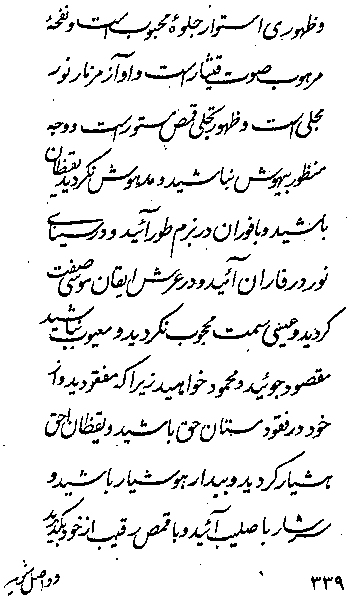 وظهوری استوار جلوهٔ محبوب است و نفحهٔ
مرهوب صوت قیثار است و آواز مزمار نور
مجلی است و ظهور تجلی قمص مستور است و وجه
منظور بیهوش نباشید و مدهوش نگردید یقظان
باشید و با فوران در بزم طور آئید و در سینای
نور در فاران آئید و در عرش ایقان موسی صفت
گردید و عیسی سمت محجوب نگردید و معیوب نباشید
مقصود جوئید و محمود خواهید زیرا که مفقودید و از
خود در نقودستان حق باشید و یقظان حق
هشیار گردید و بیدار هوشیار باشید و
سرشار با صلیب آئید و با قمص رقیب از خود بگذرید
۳۳۹ و واصل شوید